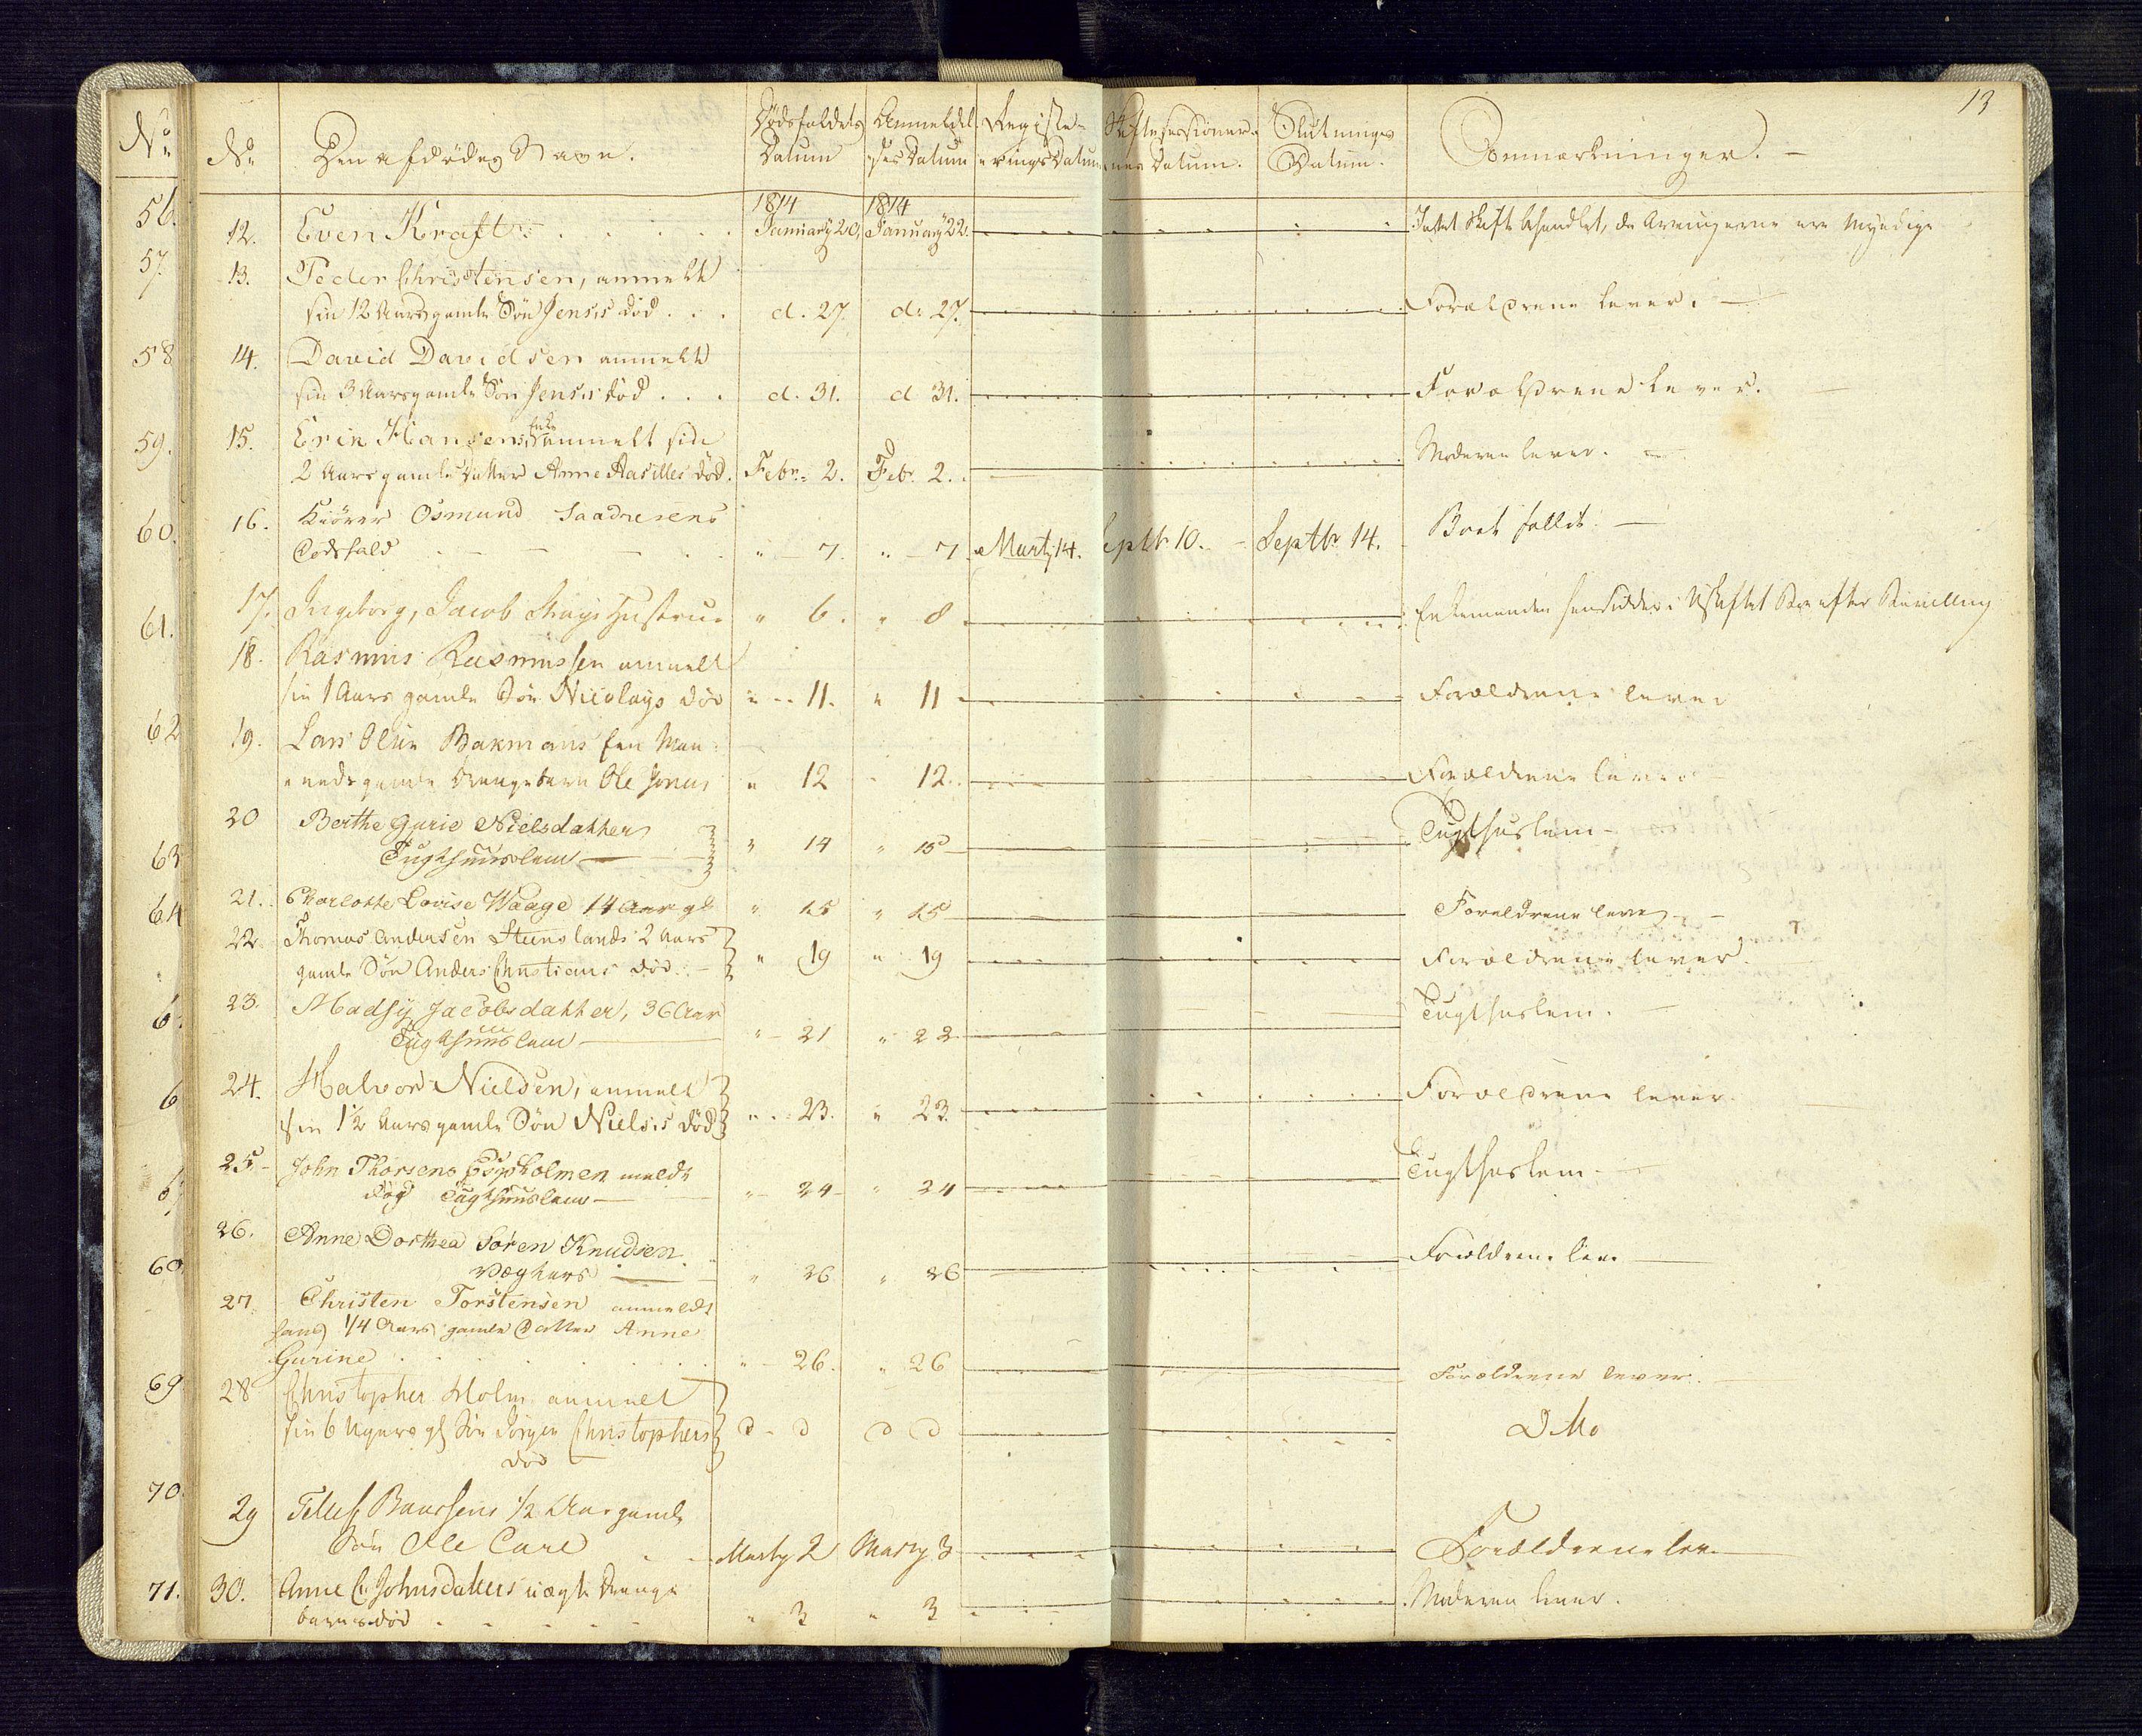 13
No
No
Den afdødes Navn.
Dødsfaldets Datum
Anmeldelses Datum
Registeeringsdatum
Skiftesessionernes Datum.
Slutnings Datum.
Anmærkninger.
1814 1814
56.
12. Even Kraft January 20. January 22. Intet Skifte behandlet, da Arvingerne ere Myndige
57.
13. Peder Christensen, anmelte
sin 12 Aarsgamle Søn Jenses død . . . d. 27. d. 27. Forældrene lever.
58
14. David Davidsen anmelte
sin 3 Aarsgamle Søn Jenses død . . . d. 31. d 31. Forældrene lever.
59.
15. Erik Hansens Enke anmelt sin
2 Aars gamle Datter Anne Aasilles død. Febr. 2. Febr. 2. Moderen lever.
60.
16. Kiører Osmund Saadresens
Dødsfald " 7. " 7. Marty 14. Septbr 10. Septbr. 14. Boet fallit.
61.
17. Ingeborg, Jacob Hustrue " 6. " 8. Enkemanden hensidder i Uskiftet Boe efter Bevilling
18. Rasmus Rasmussen anmelt
sin 1 Aars gamle Søn Nicolays død " 11. " 11 Forældrene lever
62
19. Lars Olsen Bakmans fem Maa-
neds gamle Drengebarn Ole Jonas " 12 " 12. Forældrene lever
20 Berthe Gurie Nielsdatter
Tugthuuslem " 14 " 15 Tugthuslem
63
21. Charlotte Lovise Waage 14 Aar gl " 15 " 15 Forældrene lever
64
22. Thomas Andersen Steenslands 2 Aars
gamle Søn Anders Christians død. " 19 " 19 Forældrene lever.
23. Madsy Jacobsdatter, 36 Aar
Tugthuuslem " 21 " 22 Tugthuslem.
6
24. Halvor Nielsen, anmelt
sin 1½ Aars gamle Søn Nielses død " 23. " 23. Forældrene lever.
6
25. John Thorsens Espholmen meldt
død Tugthuuslem " 24 " 24 Tugthuslem
6
26. Anne Dorthea Søren Knudsen
Vægters " 26 " 26 Forældrene leve
60
27. Christen Torstensen anmeldt
hans 1/4 Aars gamle Datter Anne
Gurine " 26. " 26 Forældrene lever.
69
28 Christopher Holm anmelt
sin 6 Ugers gl Søn Jørgen Christophers
død d d d d Ditto
70.
29 Tellef Baarsens 1/2 Aar gamle
Søn Ole Carl Marty 2 Marty 3 Forældrene lev
71.
30. Anne C. Johnsdatters uægte Drenge
barns død " 3 " 3 Moderen lever.